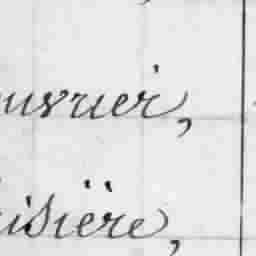 ouvrier,
isière,